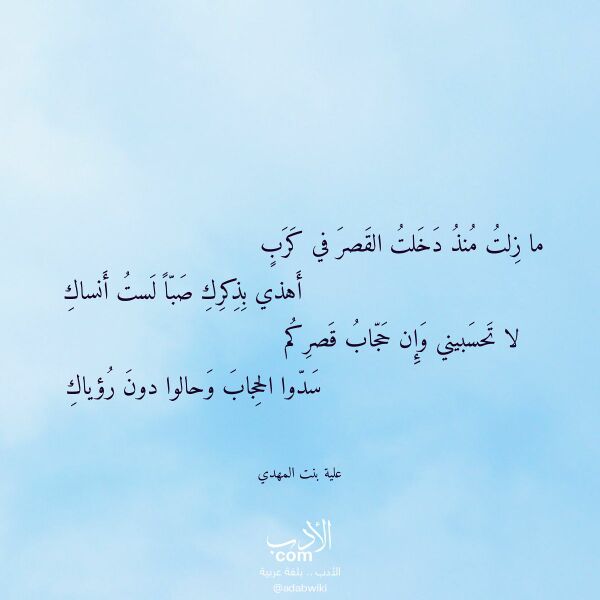 ما زِلتُ مُنذُ دَخَلتُ القَصرَ في كَرَبٍ
أَهذي بِذِكرِكِ صَبّاً لَستُ أَنساكِ
لا تَحسَبيني وَإِن حَجّابُ قَصرِكُم
سَدّوا الحِجابَ وَحالوا دونَ رُؤياكِ
علية بنت المهدي
الأدب
.com
الأدب .. بلغة عربية
@adabwiki